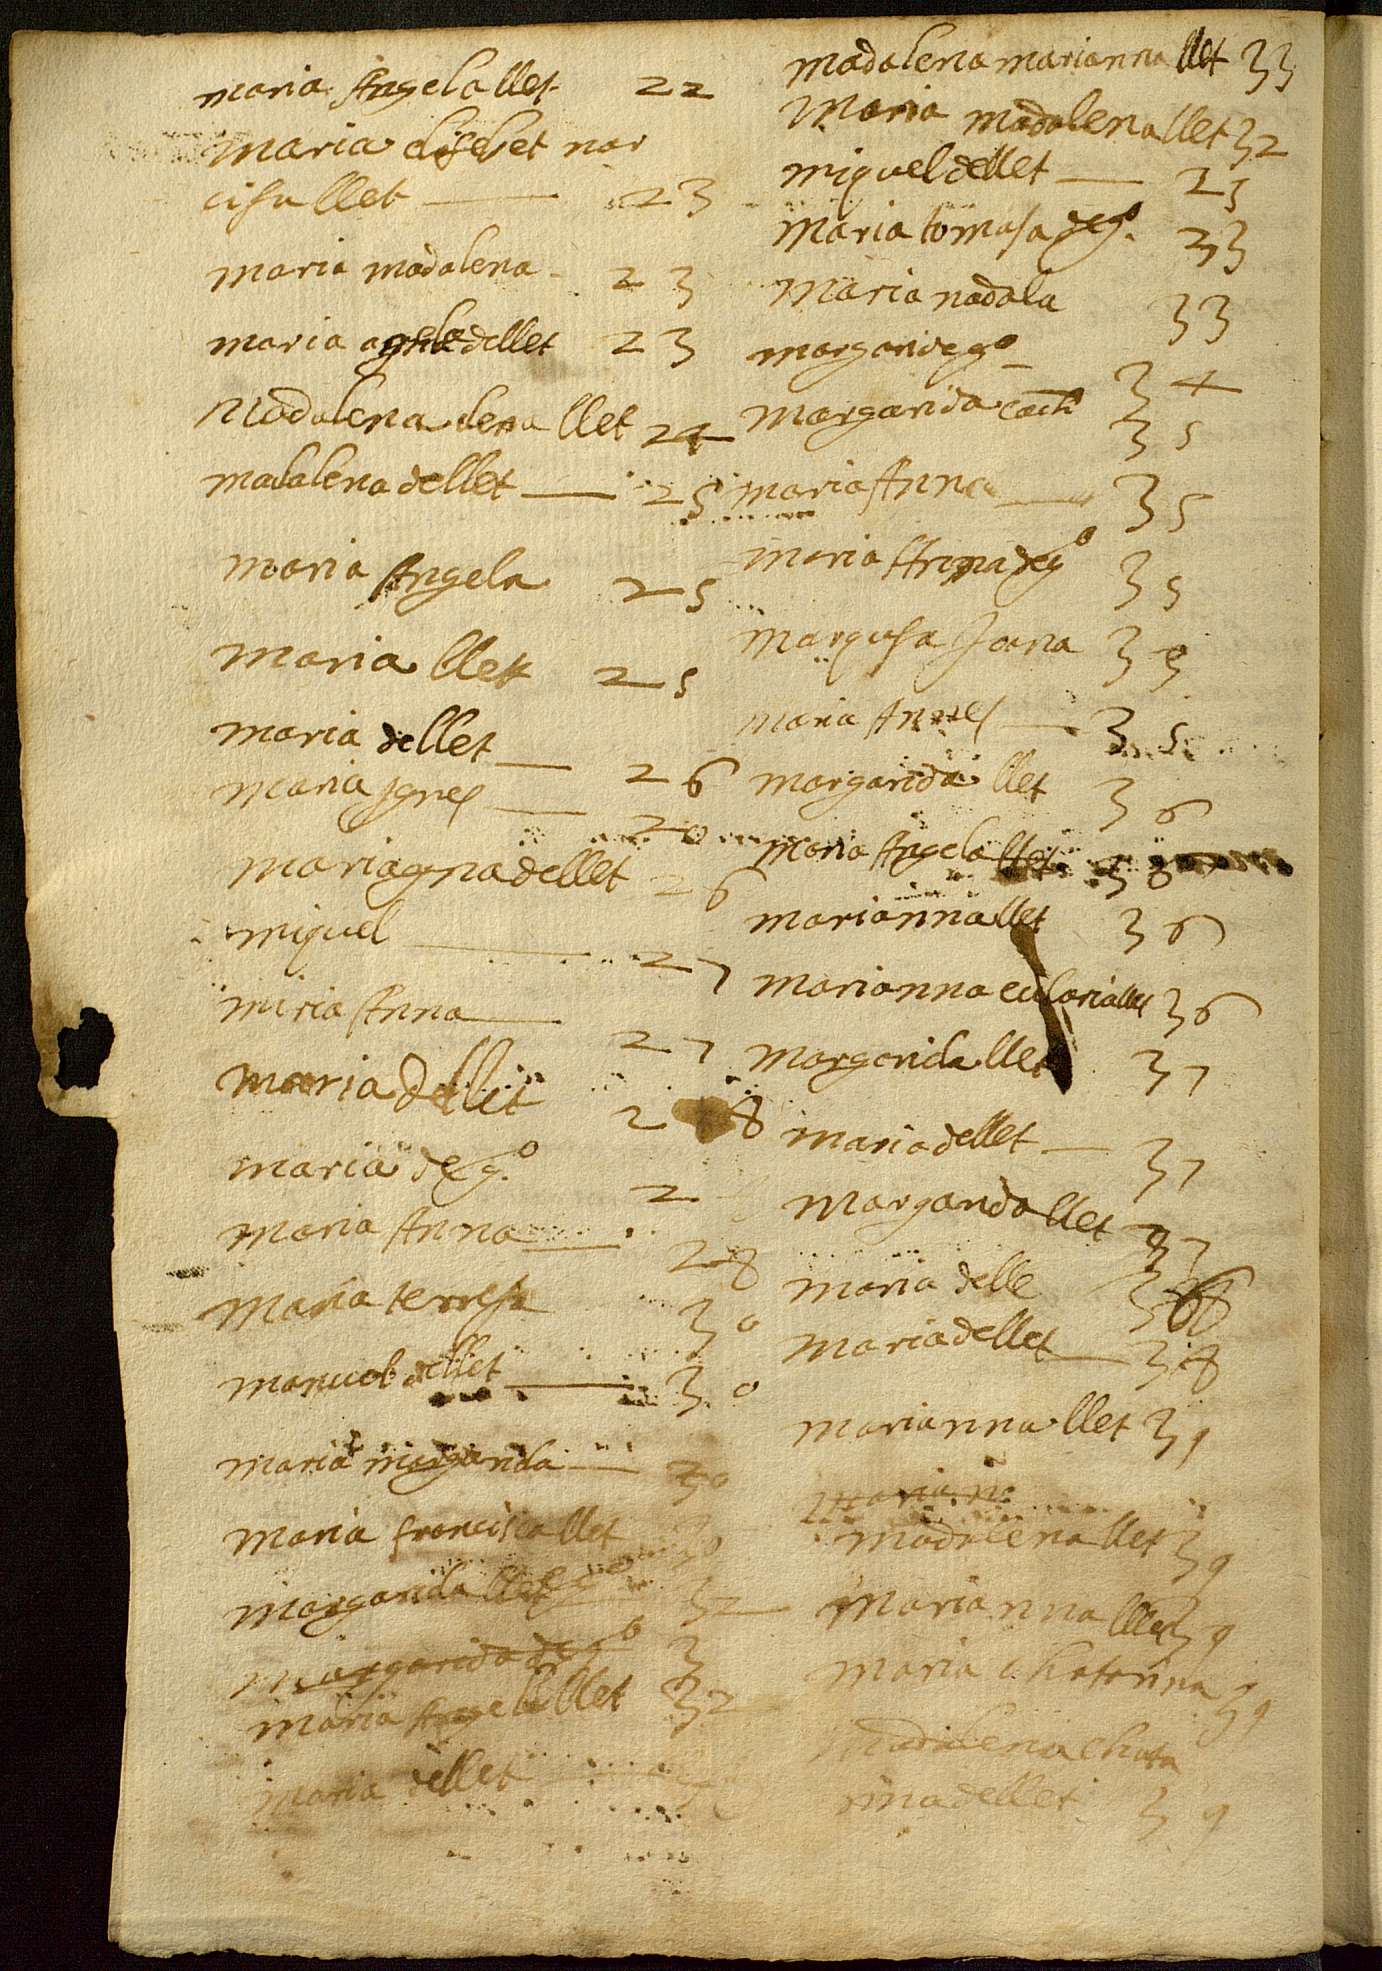 maria Angela llet 22
maria elisabet nar
cisa llet 23
maria madalena 23
maria dellet 23
Madalena llet 24
madalena dellet 25
maria Angela 25
maria llet 25
maria dellet 26
maria Ignes
maria dellet 26
miquel 27
miria Anna 27
maria dellet 28
maria deg.o 2
maria Anna 28
maria terresa 30
manuel dellet 30
maria margarida 30
maria francisca llet
margarida llet 32
margarida deg.o 3
maria Angela llet 32
maria dellet
madalena marianna llet 33
Maria madalena llet 32
miquel dellet 23
maria tomasa deg.o 33
maria nadala 33
margari deg.o 34
margarida 35
maria Anna 35
maria Anna deg.o 35
marquesa Joana 35
maria 35
margarida llet 36
maria Angela llet 38
marianna llet 36
marianna eularia llet 36
margarida llet 37
maria dellet 37
margarida llet 37
maria delle
maria dellet 38
marianna llet 39
maria n
madalena llet 39
marianna llet 39
maria chatarina 39
madalena chata
rina dellet 39